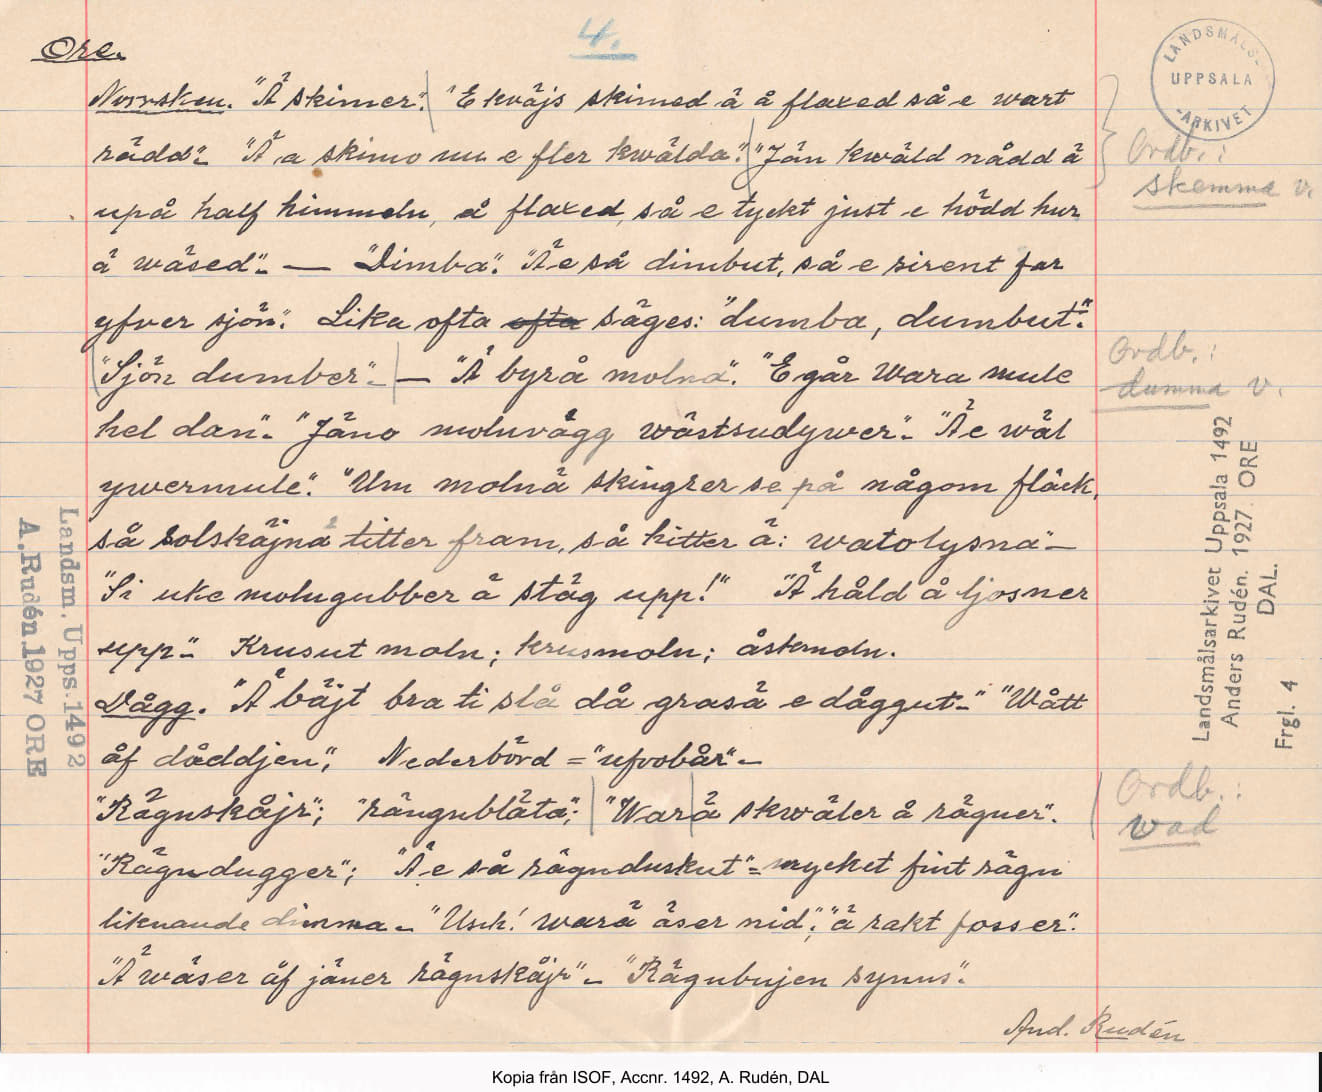 4.
Ore.
LANDSMÅLS-
UPPSALA
-ARKIVET
Norrsken. "Ä skimer". "E kväjs skimed ä å flaxed så e wart
rädd". "Ä a skimo nu e fler kwälda". "Jän kwäld nådd ä
Ordb.:
skemma v.
upå half himmeln, å flaxed, så e tyckt just e hödd hur
ä wäsed". — "Dimba". "Ä e så dimbut, så e sirent far
yfver sjön". Lika ofta ofta säges: "dumba, dumbut".
Ordb.:
dumma v.
"Sjön dumber". — "Ä byrå molna". "E går wara mule
hel dan". "Jäno molnvågg wästsudywer". "Ä e wäl
ywermule". "Um molnä skingrer se på någom fläck,
så solskäjnä titter fram, så hitter ä: watolysna" —
"Si uke molngubber ä stäg upp!" "Ä håld å ljosner
upp". Krusut moln; krusmoln; åskmoln.
Dågg. "Ä bäjt bra ti slå då grasä e däggut". "Wått
åf dåddjen"; Nederbörd = "ufvobår". —
"Rägnskåjr"; "rängnblåta"; "Warä skwäler å rägner".
Ordb.:
wad
"Rägndugger"; "Ä e så rägnduskut" = mycket fint rägn
liknande dimma. "Usch! warä äser nid"; "ä rakt fosser".
"Ä wäser åf jäner rägnskåjr". — "Rägnbujen synus".
And. Rudén
Landsm. Upps. 1492
A. Rudén. 1927 ORE
Landsmålsarkivet Uppsala 1492
Anders Rudén. 1927. ORE
DAL.
Frgl. 4
Kopia från ISOF, Accnr. 1492, A. Rudén, DAL